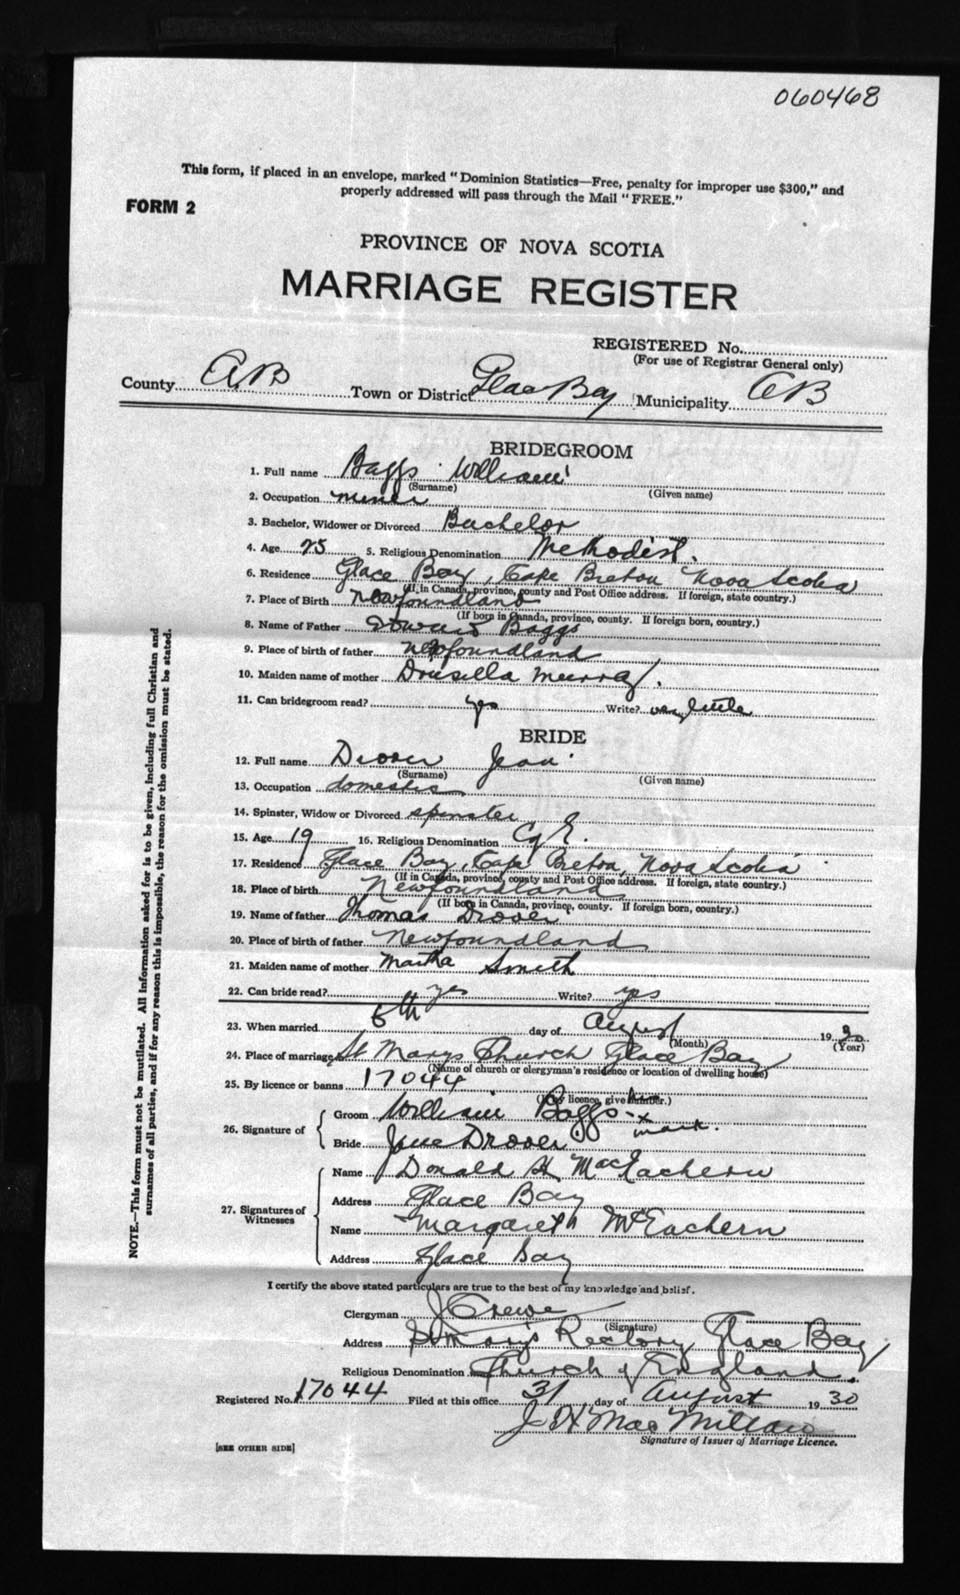 060468
This form, if placed in an envelope, marked "Dominion Statistics—Free, penalty for improper use $300," and
properly addressed will pass through the Mail "FREE."
FORM 2
PROVINCE OF NOVA SCOTIA
MARRIAGE REGISTER
REGISTERED No.
(For use of Registrar General only)
County CB Town or District Glace Bay Municipality CB
BRIDEGROOM
1. Full name Baggs William
(Surname) (Given name)
2. Occupation miner
3. Bachelor, Widower or Divorced Bachelor
4. Age 25 5. Religious Denomination Methodist.
6. Residence Glace Bay, Cape Breton Nova Scotia
(If in Canada, province, county and Post Office address. If foreign, state country.)
7. Place of Birth Newfoundland
(If born in Canada, province, county. If foreign born, country.)
8. Name of Father Baggs
9. Place of birth of father Newfoundland
10. Maiden name of mother Drusilla Murray.
11. Can bridegroom read? yes Write? very little
BRIDE
12. Full name Drover Jean
(Surname) (Given name)
13. Occupation domestic
14. Spinster, Widow or Divorced spinster
15. Age 19 16. Religious Denomination C of E.
17. Residence Glace Bay, Cape Breton, Nova Scotia
(If in Canada, province, county and Post Office address. If foreign, state country.)
18. Place of birth Newfoundland
(If born in Canada, province, county. If foreign born, country.)
19. Name of father Thomas Drover
20. Place of birth of father Newfoundland
21. Maiden name of mother Martha Smith
22. Can bride read? yes Write? yes
23. When married 6th day of August 1930
(Month) (Year)
24. Place of marriage St Marys Church Glace Bay
(Name of church or clergyman's residence or location of dwelling house)
25. By licence or banns 17044
(If by licence, give number.)
26. Signature of Groom William Baggs his x mark.
Bride Jane Drover
27. Signatures of Witnesses
Name Donald H MacEachern
Address Glace Bay
Name Margaret McEachern
Address Glace Bay
I certify the above stated particulars are true to the best of my knowledge and belief.
Clergyman J Crewe
(Signature)
Address St Mary's Rectory Glace Bay
Religious Denomination Church of England.
Registered No. 17044 Filed at this office 31 day of August 1930
J H MacMillan
Signature of Issuer of Marriage Licence.
[SEE OTHER SIDE]
NOTE.—This form must not be mutilated. All information asked for is to be given, including full Christian and
surnames of all parties, and if for any reason this is impossible, the reason for the omission must be stated.